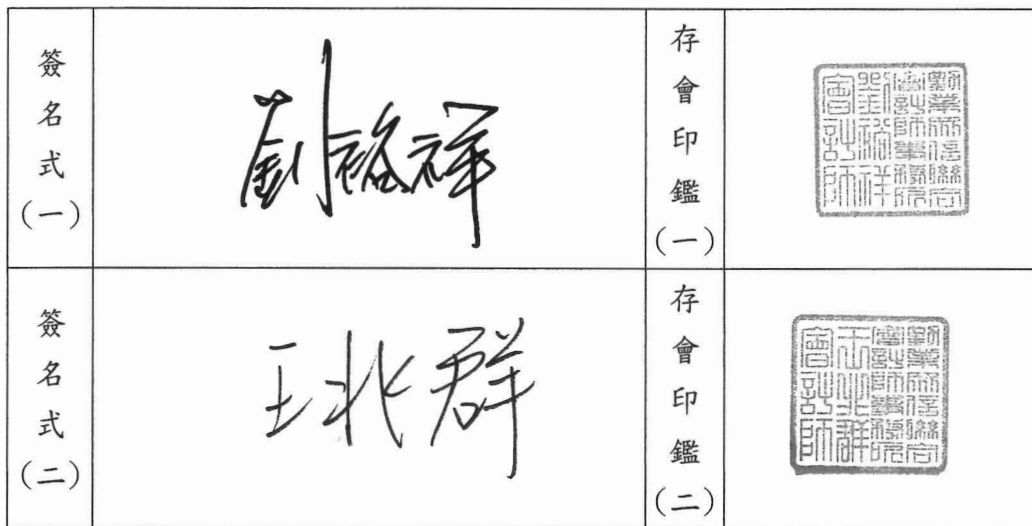 簽名式(一)
劉裕祥
存會印鑑(一)
勤業眾信聯合
會計師事務所
劉裕祥
會計師
簽名式(二)
王兆群
存會印鑑(二)
勤業眾信聯合
會計師事務所
王兆群
會計師